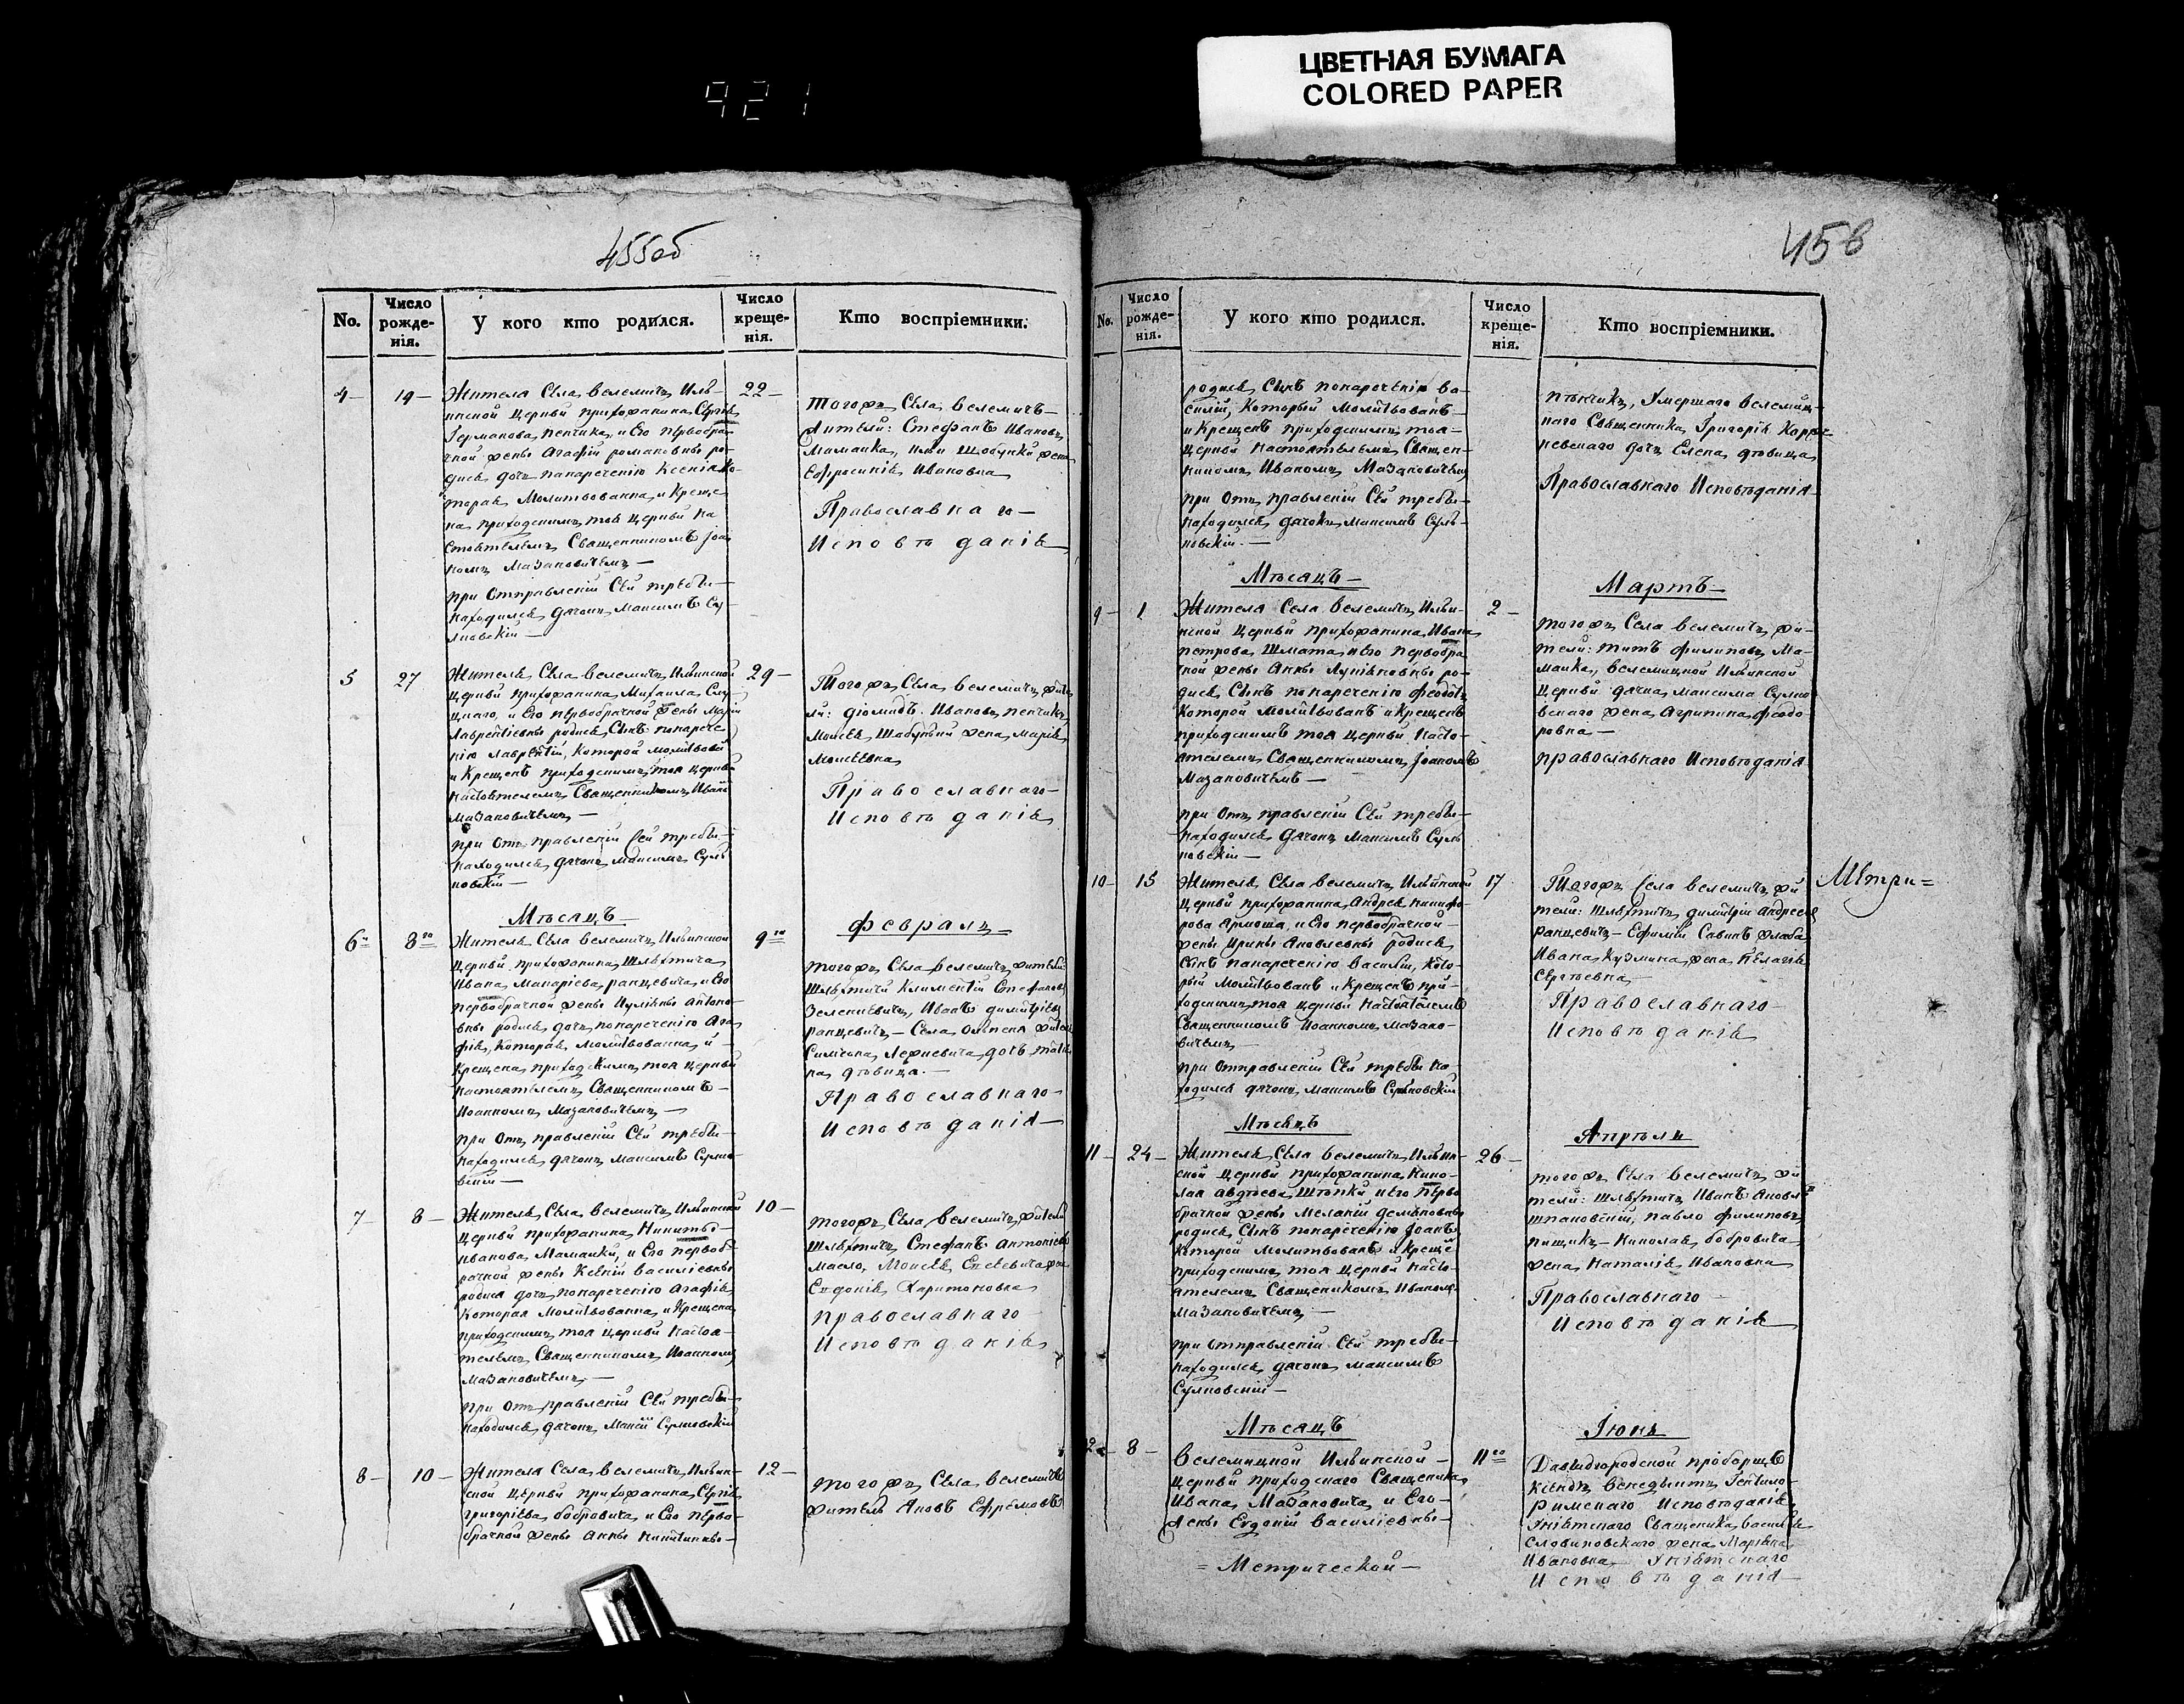 ЦВЕТНАЯ БУМАГА
COLORED PAPER
921
455об
No.
Число рожде-нія.
У кого кто родился.
Число креще-нія.
Кто воспріемники.
4 19 22
Жителя Села велемичъ Иль-
инской Церкви прихожанина Сергія
Германова, пенчика, и Его первобра-
чной жены Агафіи романовны ро-
дися дочъ понареченію Ксенія ко-
торая Молитвованна, и Креще-
на приходскимъ тоя Церкви На-
стоятелемъ Священникомъ Іоан-
номъ Мазановичемъ
при Отправленіи Сей требы
находился дячокъ Максимъ Су-
лковскій
тогожъ Села велемичъ
жители: Стефанъ Ивановъ
Мамайка, жена
Ефросинія Ивановна
Православнаго
Исповѣданія
5 27 29
Жителя Села велемичъ Ильинской
Церкви прихожанина Михаила
и Его первобрачной жены Маріи
Лаврентіевны родися Сынъ понарече-
нію Лаврентій, Которой молитвован
и Крещенъ приходскимъ тоя церкви
Настоятелемъ Священникомъ Иван
Мазановичемъ
при Отправленіи Сей требы
находился дячокъ Максимъ Суль-
ковскій
Тогожъ Села велемичъ жите
ли: діомидъ Ивановъ пенчикъ,
Моисея жена Марія
Моисеевна
Православнаго
Исповѣданія
Мѣсяцъ
февраль
6 8 9
Жителя Села велемичъ Ильинской
Церкви прихожанина Шляхтича
Ивана Макаріева ранцевича, и Его
первобрачной жены Іуліяны Антоно-
вны родися дочъ понареченію Ага-
фія, Которая Молитвованна, и
Крещена приходскимъ тоя церкви
настоятелемъ Священникомъ
Иоанномъ Мазановичемъ
при Отправленіи Сей требы
находился дячокъ Максимъ Сулко-
вскій
тогожъ Села велемичъ жители
Шляхтичи Климентій Стефановъ
Зеленкевичъ, Иванъ димитріевъ
ранцевичъ — Села
дочъ
на дѣвица.
Православнаго
Исповѣданія
7 8 10
Жителя Села велемичъ Ильинской
Церкви прихожанина Никиты
иванова Мамайки, и Его первоб-
рачной жены Ксеніи василіевны
родися дочъ понареченію Агафія
Которая Молитвованна, и Крещена
приходскимъ тоя церкви Настоя-
телемъ Священникомъ Иоанномъ
Мазановичемъ
при Отправленіи Сей требы
находился дячокъ Сулковскій
тогожъ Села велемичъ жители
Шляхтичъ Стефанъ Антоніевъ
Масло, Моисея
Евдокія Харитоновна
православнаго
Исповѣданія
8 10 12
Жителя Села велемичъ Ильин-
ской Церкви прихожанина Сергія
григоріева бобровича, и Его перво-
брачной жены Анны Никитичны
тогожъ Села велемичъ
житель Яковъ Ефремовъ
456
No.
Число рожде-нія.
У кого кто родился.
Число креще-нія.
Кто воспріемники.
родися Сынъ понареченію ва-
силій, Который Молитвованъ
и Крещенъ приходскимъ тоя
церкви Настоятелемъ Священ-
никомъ Иваномъ Мазановичемъ
при Отправленіи Сей требы
находился дячокъ Максимъ Суль-
ковскій.
пѣнчикъ, Умершаго велемиц-
каго Священника Григорія
дочъ Елена дѣвица
Православнаго Исповѣданія
Мѣсяцъ
Мартъ
9 1 2
Жителя Села велемичъ Ильи-
нской Церкви прихожанина Ивана
петрова Шмата, и Его первобра
чной жены Анны ро-
дися Сынъ понареченію Феодотъ
Которой Молитвованъ и Крещенъ
приходскимъ тоя церкви Насто-
ятелемъ Священникомъ Іоанномъ
Мазановичемъ
при Отправленіи Сей требы
находился дячокъ Максимъ Суль
ковскій
тогожъ Села велемичъ жи-
тели: титъ филиповъ Ма-
майка, велемицкой Ильинской
Церкви дячка Максима Сулко
вскаго жена Агрипина Феодо-
ровна
православнаго Исповѣданія
10 15 17
Жителя Села велемичъ Ильинской
Церкви прихожанина Андрея никифо-
рова Ярмоша, и Его первобрачной
жены Ирины Яковлевны родися
Сынъ понареченію Василій, Кото-
рый Молитвованъ и Крещенъ при-
ходскимъ тоя церкви Настоятелемъ
Священникомъ Иоанномъ Мазано-
вичемъ
при Отправленіи Сей требы на-
ходился дячокъ Максимъ Сулковскій
Тогожъ Села велемичъ жи
тели: Шляхтичъ димитрій Андреев
ранцевичъ
Ивана Кузмина жена Пелагія
Сергіевна
Православнаго
Исповѣданія
Мѣтри=
Мѣсяцъ
Апрѣль
11 24 26
Жителя Села велемичъ Ильин-
ской Церкви прихожанина Нико-
лая авдѣева и Его перво
брачной жены Меланіи демьяновны
родися Сынъ понареченію Іоаннъ
Которой Молитвованъ и Креще
приходскимъ тоя Церкви Насто-
ятелемъ Священикомъ Иваномъ
Мазановичемъ
при Отправленіи Сей требы
находился дячокъ Максимъ
Сулковскій
тогожъ Села велемичъ жи
тели: шляхтичъ Иванъ Яковл
шпаковскій, павло филиповъ
пищикъ — Николая бобровича
жена Наталія Ивановна
Православнаго
Исповѣданія
Мѣсяцъ
Іюнь
12 8 11
Велемицкой Ильинской
Церкви приходскаго Священика
Ивана Мазановича и Его
Жены Евдокіи василіевны
Давидгородской пробощъ
Ксіондзъ Бенедыктъ
Римскаго Исповѣданія
Уніятскаго Священика Василія
Словиковскаго жена Маріяна
Ивановна Уніятскаго
Исповѣданія
= Метрической